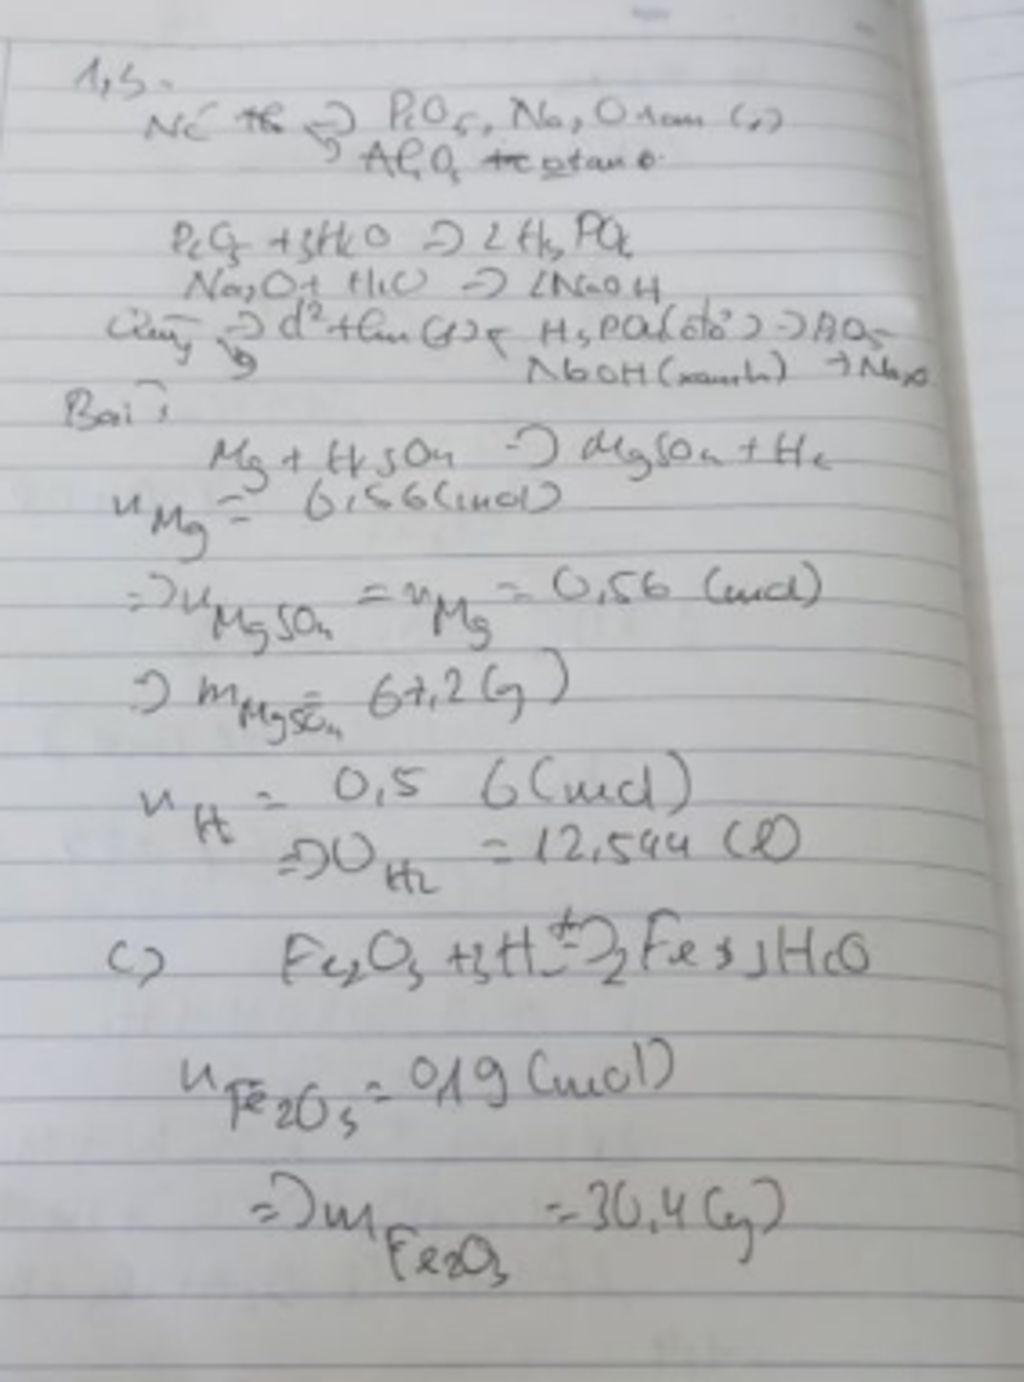 1,5.
P₂O₅, Na₂O tan (1)
Al₂O₃
P₂O₅ + 3H₂O → 2H₃PO₄
Na₂O + H₂O → 2NaOH
H₃PO₄ (đỏ) →
NaOH (xanh) → Na₂O
Bài
Mg + H₂SO₄ → MgSO₄ + H₂
n Mg = 0,56 (mol)
=> n MgSO₄ = n Mg = 0,56 (mol)
=> m MgSO₄ = 67,2 (g)
n H₂ = 0,56 (mol)
=> V H₂ = 12,544 (l)
c) Fe₂O₃ + 3H₂ → 2Fe + 3H₂O
n Fe₂O₃ = 0,19 (mol)
=> m Fe₂O₃ = 30,4 (g)